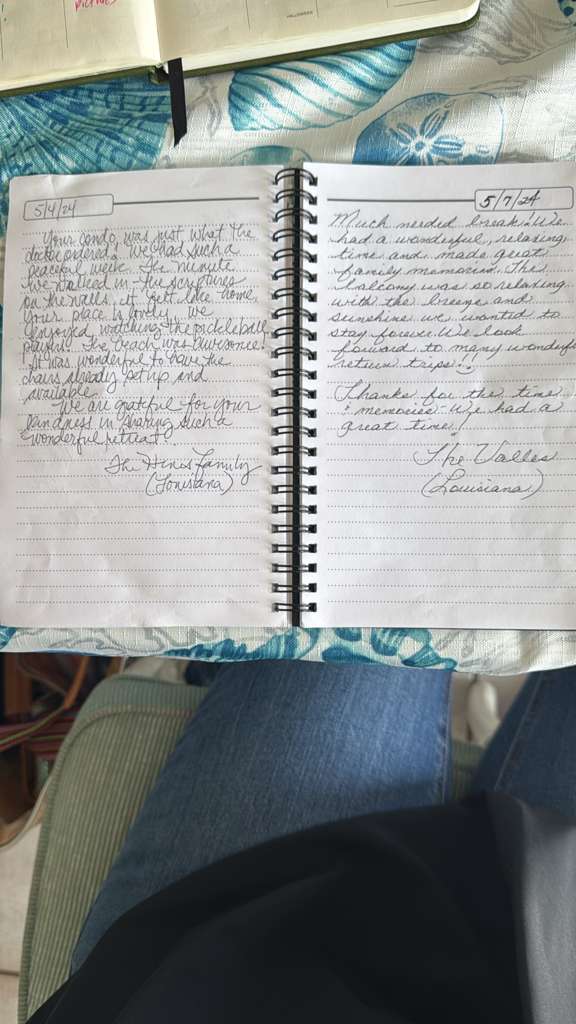 pictures
HALLOWEEN
5/4/24
Your condo was just what the
doctor ordered. We had such a
peaceful week. The minute
we walked in - the scriptures
on the walls, it felt like home.
Your place is lovely, we
enjoyed watching the pickleball
players. The beach was awesome!
It was wonderful to have the
chairs already set up and
available.
We are grateful for your
kindness in sharing such a
wonderful retreat!
The Hines Family
(Louisiana)
5/7/24
Much needed break! We
had a wonderful, relaxing
time and made great
family memories. The
balcony was so relaxing
with the breeze and
sunshine we wanted to
stay forever. We look
forward to many wonderful
return trips!
Thanks for the time
& memories - We had a
great time!
The Valles
(Louisiana)